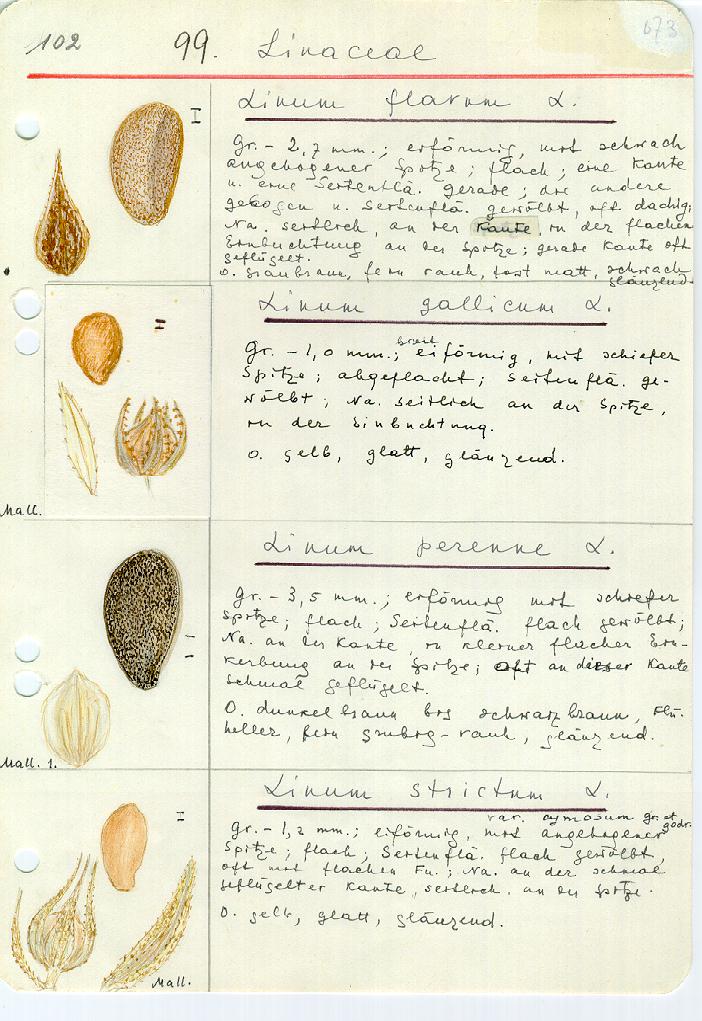 102 99. Linaceae 673
Linum flavum L.
Gr. - 2,7 mm.; eiförmig, mit schwach
angebogener Spitze; flach; eine Kante
u. eine Seitenflä. gerade; die andere
gebogen u. Seitenflä. gewölbt, oft dachig;
Na. seitlich, an der Kante in der flachen
Einbuchtung an der Spitze; gerade Kante oft
geflügelt.
O. graubraun, fein rauh, fast matt, schwach
glänzend.
Linum gallicum L.
II
Gr. - 1,0 mm.; breit eiförmig, mit schiefer
Spitze; abgeflacht; Seitenflä. ge-
wölbt; Na. seitlich an der Spitze,
in der Einbuchtung.
O. gelb, glatt, glänzend.
Mall.
Linum perenne L.
Gr. - 3,5 mm.; eiförmig mit schiefer
Spitze; flach; Seitenflä. flach gewölbt;
Na. an der Kante, in kleiner flacher Ein-
kerbung an der Spitze; oft an dieser Kante
schmal geflügelt.
O. dunkelbraun bis schwarzbraun, Flü.
heller, fein grubig-rauh, glänzend.
Mall. 1.
Linum strictum L.
var. cymosum gr. et
godr.
Gr. - 1,2 mm.; eiförmig, mit angebogener
Spitze; flach; Seitenflä. flach gewölbt,
oft mit flachen Fu.; Na. an der schmal
geflügelter Kante, seitlich an der Spitze.
O. gelb, glatt, glänzend.
Mall.